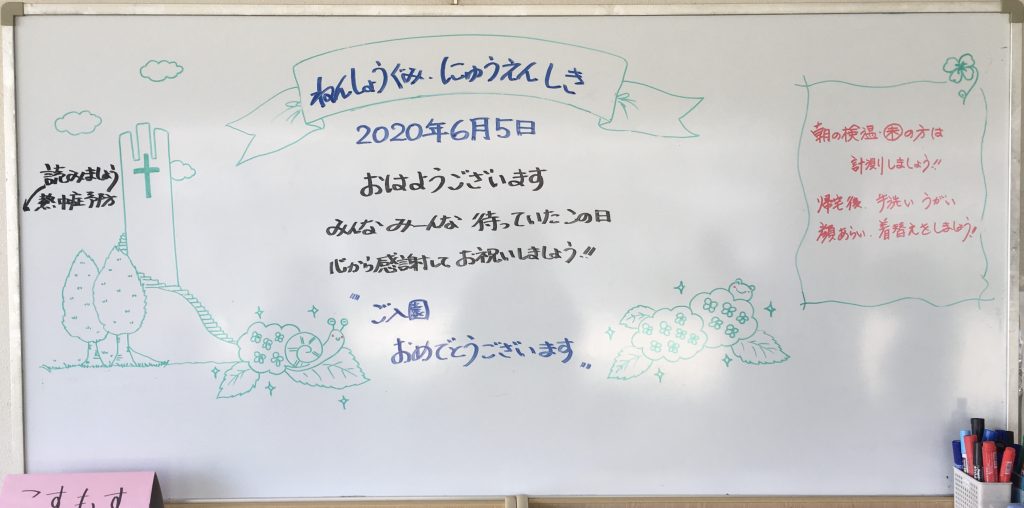 ねんしょうぐみ・にゅうえんしき
2020年6月5日
おはようございます
みんな・みーんな 待っていたこの日
心から感謝して お祝いしましょう!!
"ご入園
おめでとうございます"
読みましょう
熱中症予防
朝の検温・㊍の方は
計測しましょう!!
帰宅後、手洗い うがい
顔あらい、着替えをしましょう!
こすもす